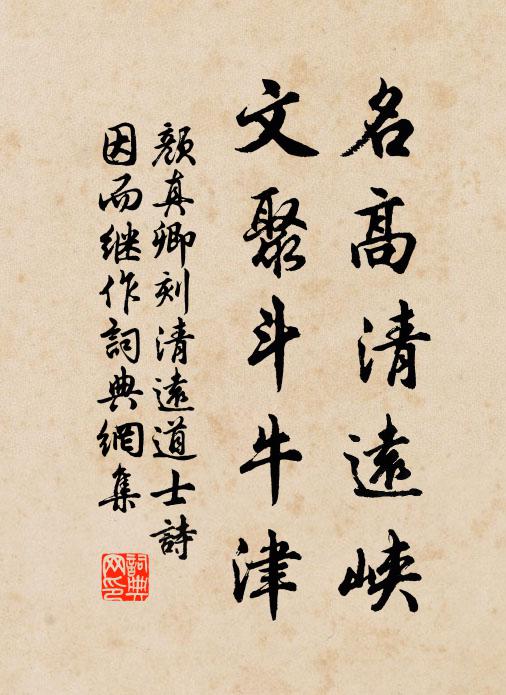 名高清遠峽
文聚斗牛津
顏真卿刻清遠道士詩
因而继作詞典網集
詞典网印